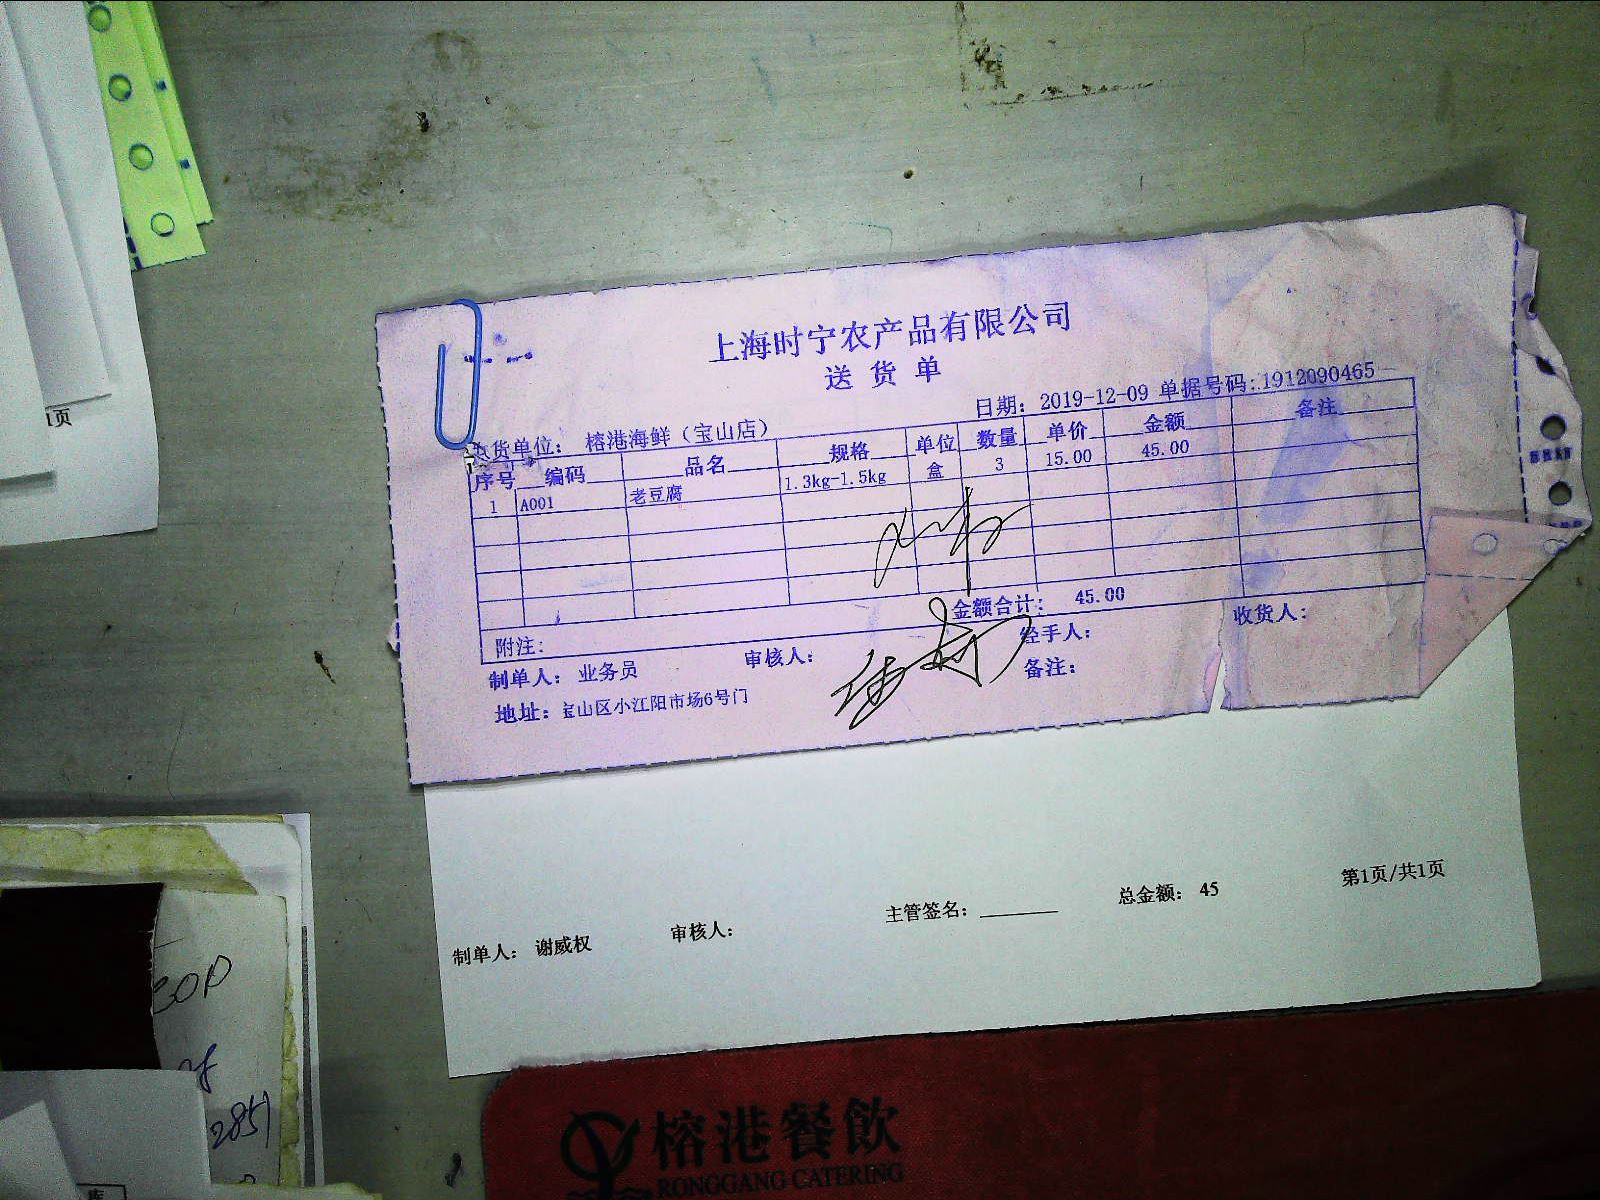 上海时宁农产品有限公司
送货单
日期：2019-12-09 单据号码：1912090465
货单位：榕港海鲜（宝山店）
序号 编码 品名 规格 单位 数量 单价 金额 备注
1 A001 老豆腐 1.3kg-1.5kg 盒 3 15.00 45.00
金额合计：45.00
附注：
制单人：业务员 审核人： 经手人： 收货人：
地址：宝山区小江阳市场6号门 备注：
制单人：谢威权 审核人： 主管签名： 总金额：45 第1页/共1页
1页
30P
2851
榕港餐飲
RONGGANG CATERING